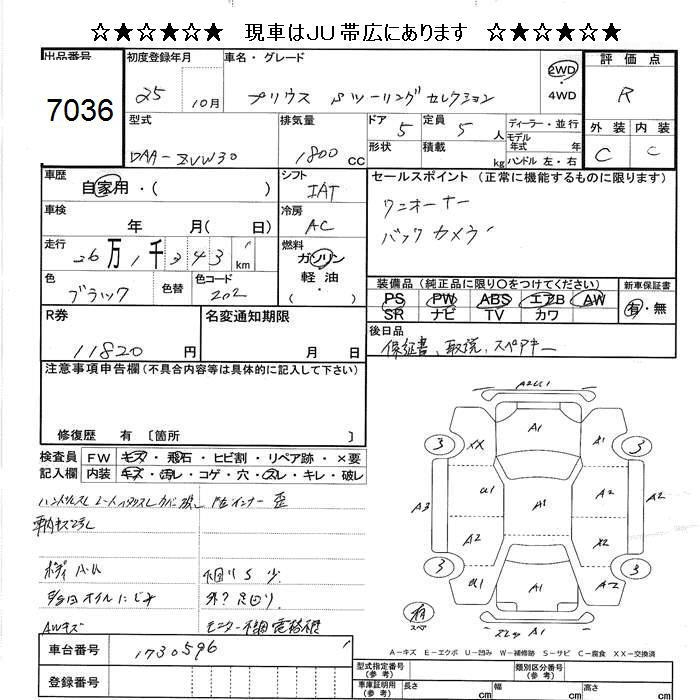 ☆★☆★☆★☆ 現車はJU帯広にあります ☆★☆★☆★☆
出品番号 初度登録年月 車名・グレード 評価点
7036 25 10月 プリウス Sツーリングセレクション 2WD R
4WD
型式 排気量 ドア 5 定員 5 人 ディーラー・並行 外装 内装
モデル年式 年
DAA-ZVW30 1800 CC 形状 積載 kg ハンドル 左・右 C C
車歴 シフト セールスポイント (正常に機能するものに限ります)
自家用・( ) IAT ワンオーナー
車検 冷房
年 月( 日) AC バックカメラ
走行 燃料
26万1千343 km ガソリン
軽油
・
( )
色 色替 色コード 装備品 (純正品に限り○をつけてください) 新車保証書
ブラック 202 PS PW ABS エアB AW 有・無
SR ナビ TV カワ
R券 名変通知期限 後日品
11820 円 月 日 保証書、取説、スペアキー
注意事項申告欄(不具合内容等は具体的に記入して下さい)
修復歴 有 〔箇所
検査員 FW キズ・飛石・ヒビ割・リペア跡・×要
記入欄 内装 キズ・汚レ・コゲ・穴・スレ・キレ・破レ
A2U1
A1
3 XX A1 3
A3 U1 A1 A2 A2
A2 X2
3 U1 A1 A2 3
有
スペア
スレ A1
ボディ 小U
AWキズ
車台番号 1730596
登録番号
A-キズ E-エクボ U-凹み W-補修跡 S-サビ C-腐食 XX-交換済
型式指定番号(参考) 類別区分番号(参考)
車庫証明用(参考) 長さ cm 幅 cm 高さ cm